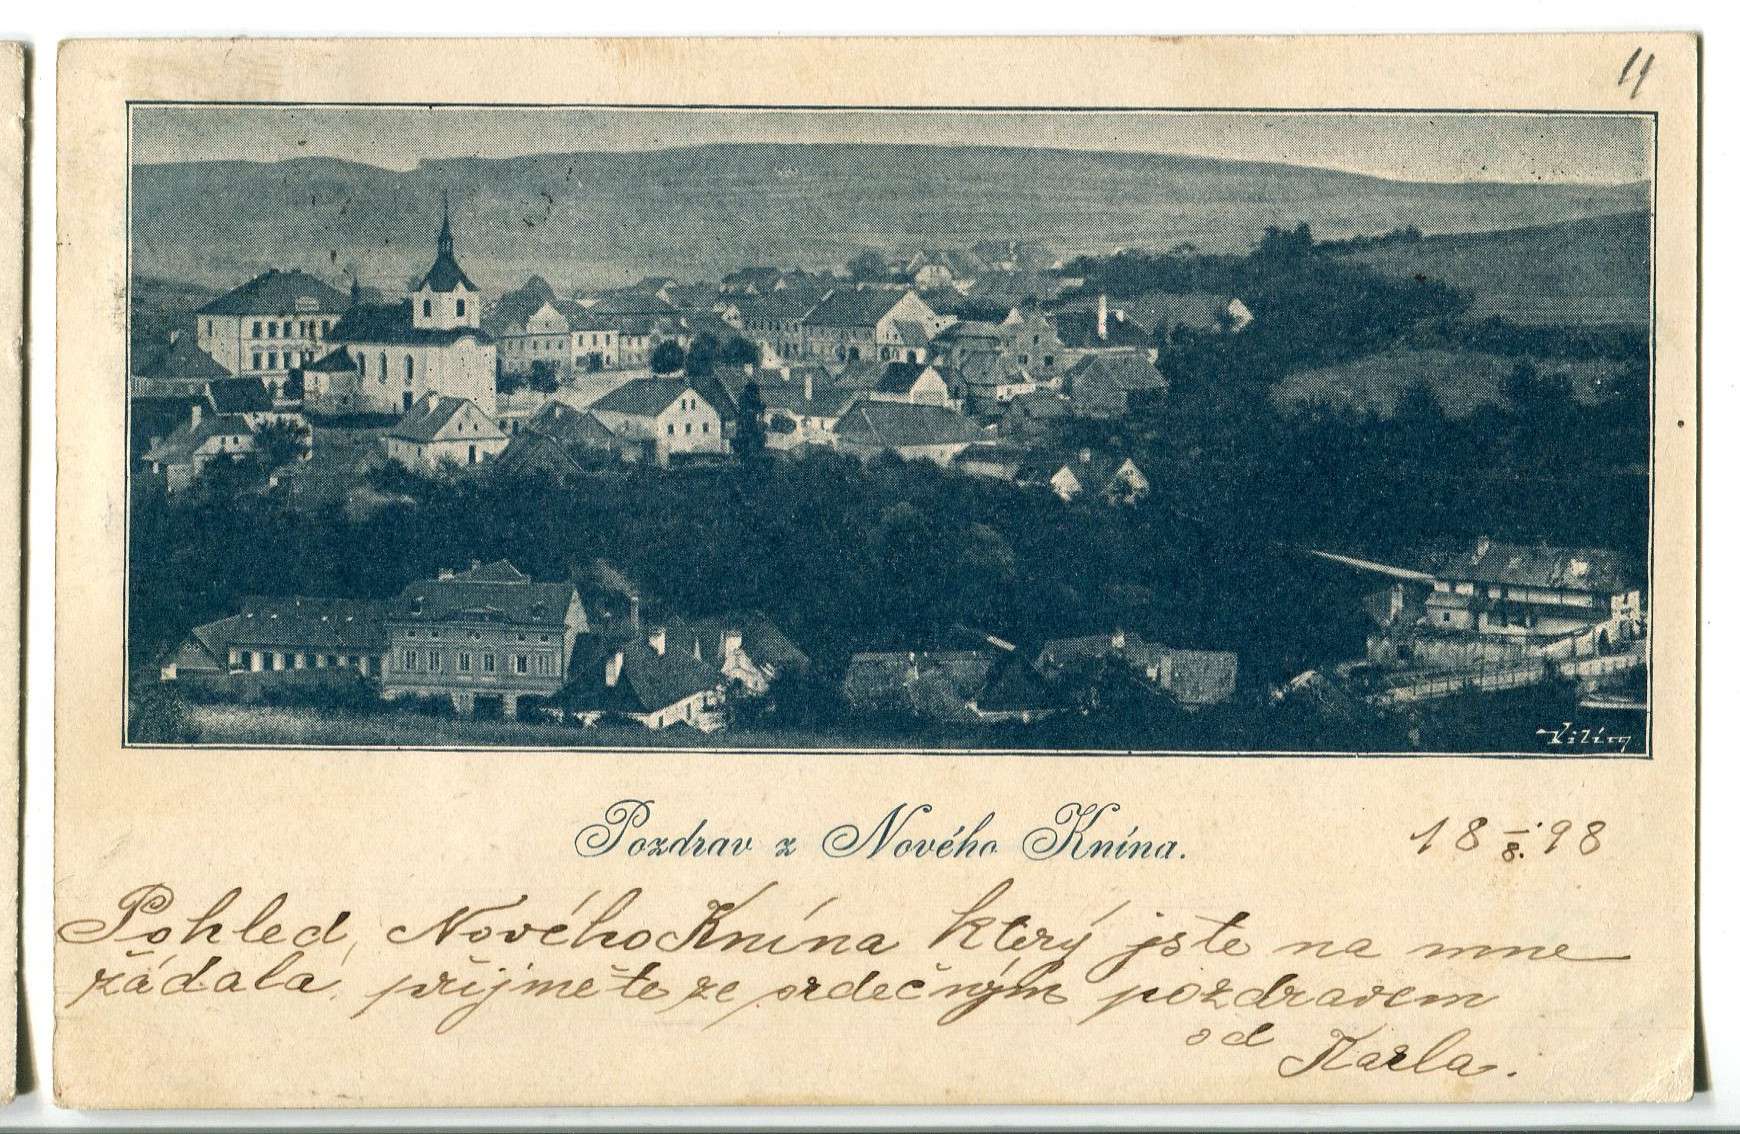 11
Kilín
Pozdrav z Nového Knína.
18 – 98
8.
Pohled Nového Knína který jste na mne
žádala, přijměte ze srdečným pozdravem
od Karla.